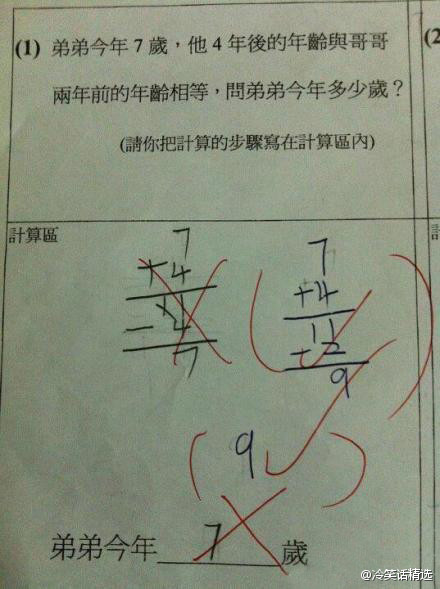 (1) 弟弟今年 7 歲，他 4 年後的年齡與哥哥
兩年前的年齡相等，問弟弟今年多少歲？
(請你把計算的步驟寫在計算區內)
(2
計算區
7
+4
11
-4
7
7
+4
11
-2
9
(9)
弟弟今年 7 歲
@冷笑话精选